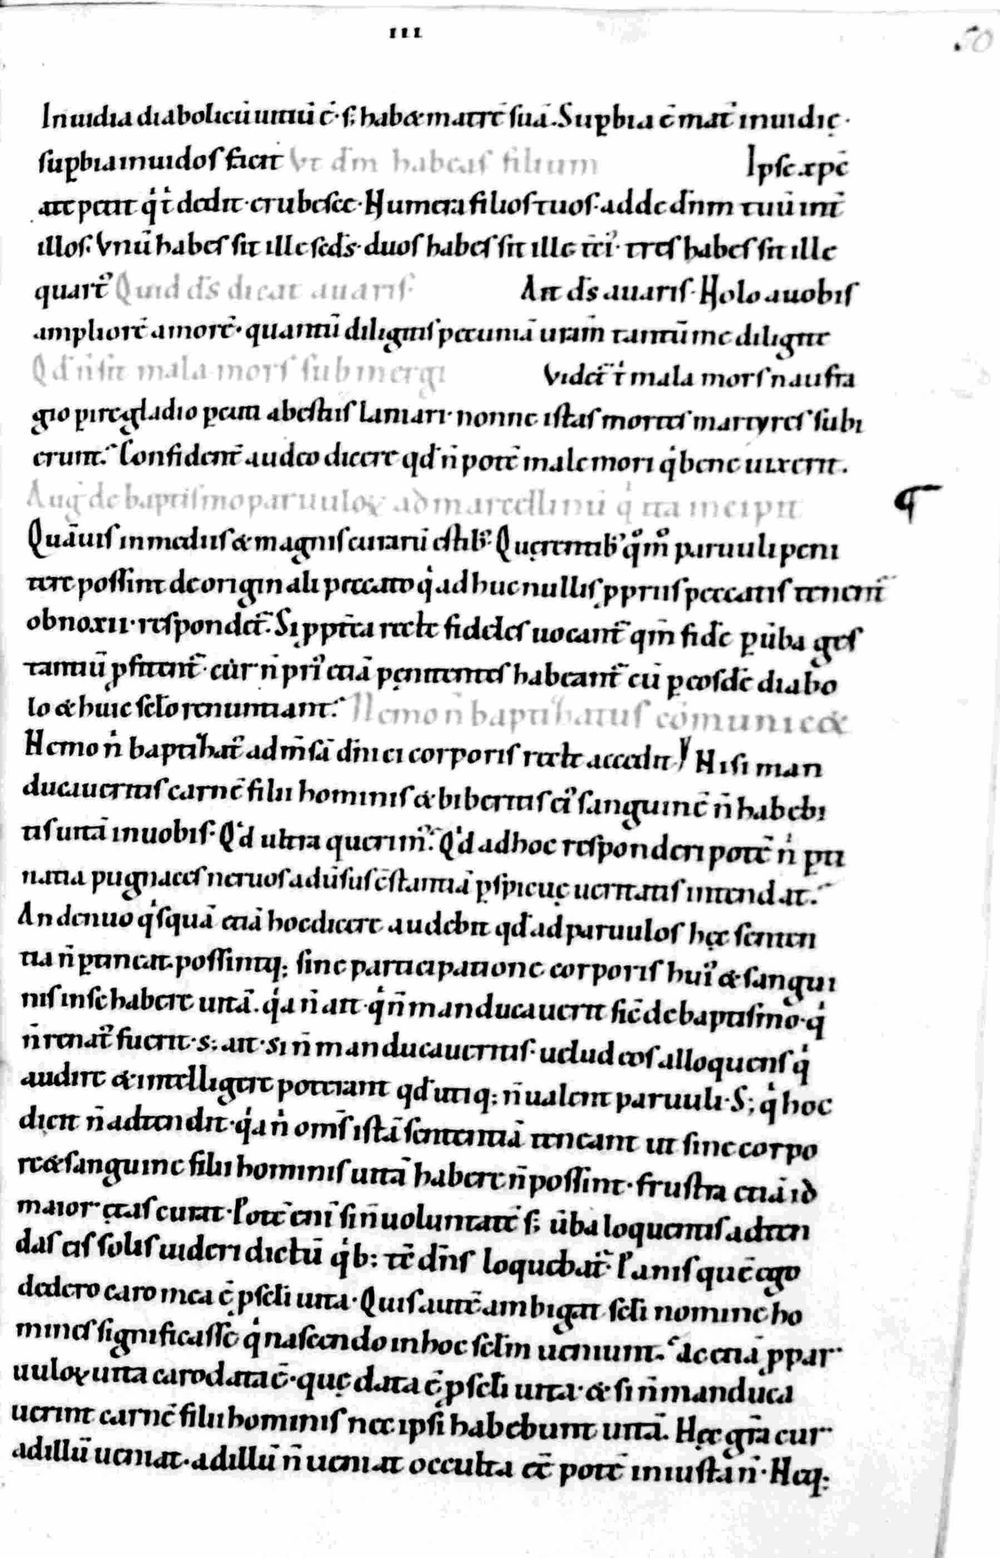 III
50
Inuidia diabolicū uitiū ē · s; habet matrē suā. Supbia ē mat̄ inuidię ·
supbia inuidos facit Vt dn̄m habeas filium Ipse xp̄c
ate petit q̇ t̄ dedit · erubesce · Numera filios tuos · adde dn̄m tuū int̄
illos. Vnū habes sit ille scds̄ · duos habes sit ille tc̄i᾽ · tres habes sit ille
quart᾽ Quid ds̄ dicat auaris · Ait ds̄ auaris · Nolo a uobis
ampliorē amorē · quantū diligitis pecuniā uram̄ tantū me diligite
Qd n̄ sit mala mors submergi Videt᾽ t̄ mala mors naufra
gio pire gladio peti a bestiis laniari · nonne istas mortes martyres subi
erunt. Confident̄ audeo dicere qd n̄ potē male mori q̇ bene uixerit .
Auḡ de baptismo paruuloꝝ ad marcellinū q̇ ita incipit
Quāuis in mediis & magnis curarū estib᾽. Querentib᾽ q̊m̊ paruuli peni
tere possint de originali peccato q̇ adhuc nullis ppriis peccatis tenent᾽
obnoxii · respondet᾽. Si ppt̄ea recte fideles uocant᾽ qm̄ fidē p ūba ges
tantiū pfitent᾽ · cur n̄ pri᾽ etiā penitentes habeant᾽ cū p eosdē diabo
lo & huic sclo renuntiant. Nemo n̄ baptizatus cōmunicet
Nemo n̄ baptizat᾽ ad mn̄sā dn̄ici corporis recte accedit / Nisi man
ducaueritis carnē filii hominis & biberitis ei᾽ sanguinē n̄ habebi
tis uitā in uobis · Qd ultra querim᾽. Qd ad hoc responderi potē n̄ pti
natia pugnaces neruos aduīsus cs̄tantiā pspicuę ueritatis intendat.
An denuo q̇squā etiā hoc dicere audebit qd ad paruulos hęc senten
tia n̄ ptineat · possintq; sine participatione corporis hui᾽ & sangui
nis in se habere uitā. q̇a n̄ ait · q̇ n̄ manducauerit sic̄ de baptismo · q̇
n̄ renat᾽ fuerit · s; ait · si n̄ manducaueritis · uelud eos alloquens q̇
audire & intelligere poterant qd utiq; n̄ ualent paruuli · S; q̇ hoc
dicit n̄ adtendit · q̇a n̄ oms̄ istā sententiā teneant ut sine corpo
re & sanguine filii hominis uitā habere n̄ possint · frustra etiā id
maior ętas curat · Potē eni᾽ si n̄ uoluntatē s; ūba loquentis adten
das eis solis uideri dictū q̇b; tc̄ dn̄s loquebat᾽. Panis quē ego
dedero caro mea ē p scli uita · Quis autē ambigat scli nomine ho
mines significasse q̇ nascendo in hoc sclm ueniunt. ac etiā p par
uuloꝝ uita caro data ē · quę data ē p scli uita · & si n̄ manduca
uerint carnē filii hominis nec ipsi habebunt uitā. Hęc grā cur
ad illū ueniat · ad illū n̄ ueniat occulta eē potē iniusta n̄ · Neq;